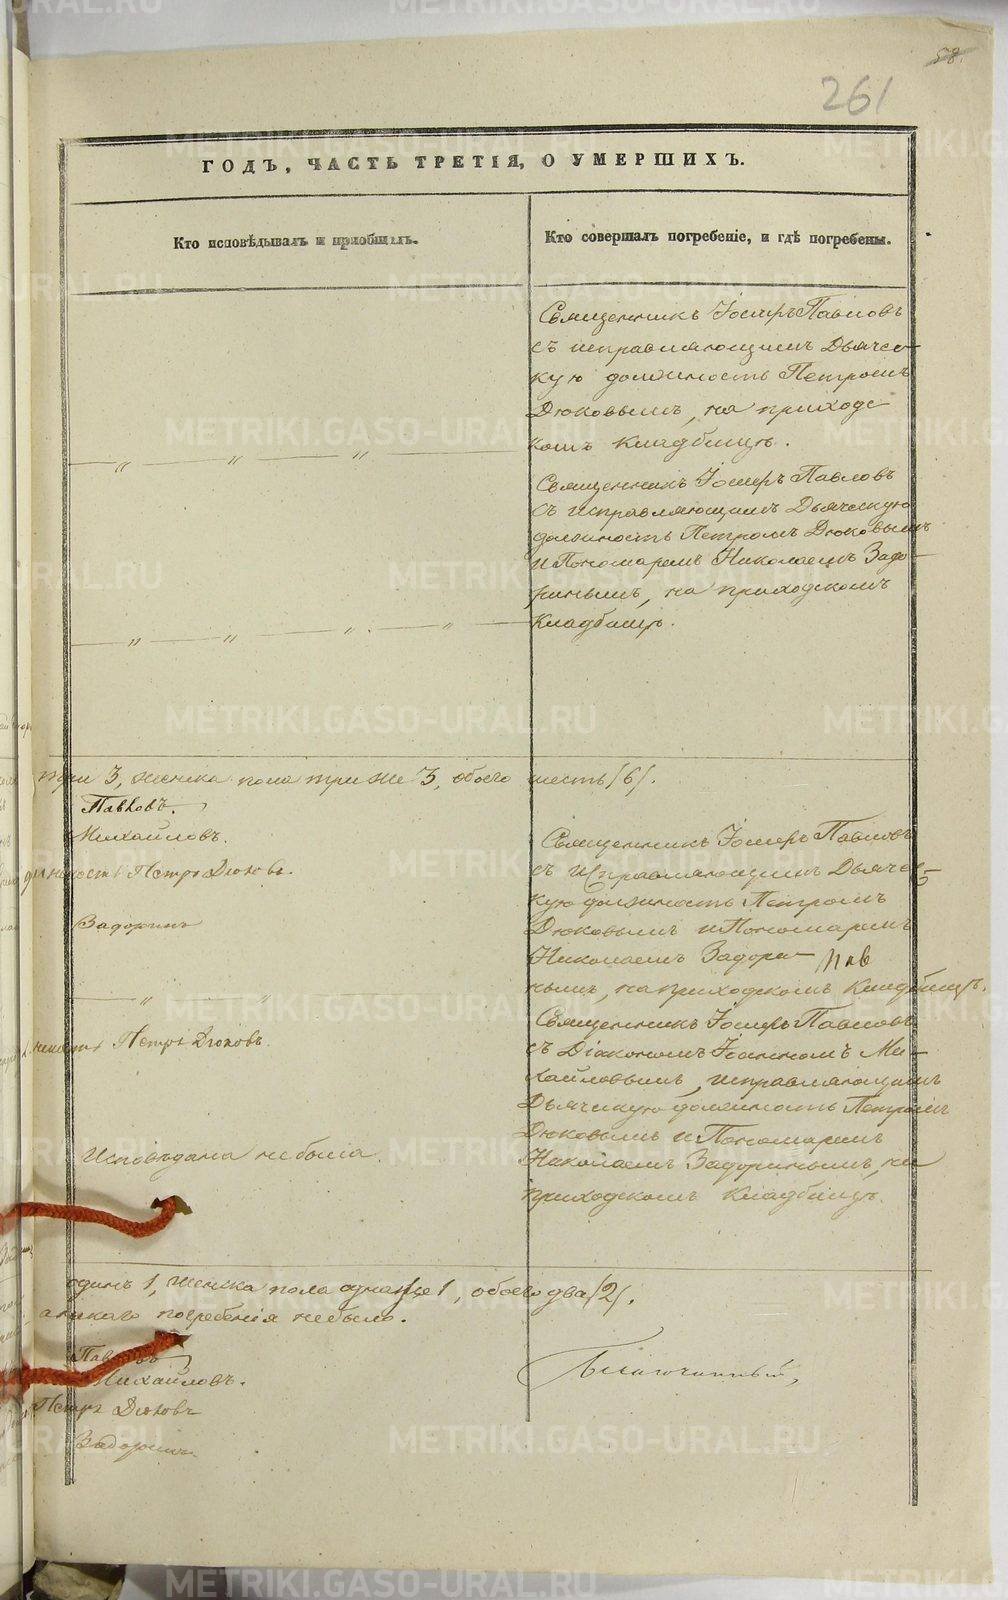 58.
261
ГОДЪ, ЧАСТЬ ТРЕТІЯ, О УМЕРШИХЪ.
Кто исповѣдывалъ и пріобщалъ.
Кто совершалъ погребеніе, и гдѣ погребены.
Священникъ Іосифъ Павловъ
съ исправляющимъ Дьячес-
кую должность Петромъ
Дюковымъ, на приходс
комъ кладбищѣ.
— „ — „ — „
Священникъ Іосифъ Павловъ
съ исправляющимъ Дьяческую
должность Петромъ Дюковымъ
и Пономаремъ Николаемъ Задо-
ринымъ, на приходскомъ
кладбищѣ.
— „ — „ — „ — „ —
три 3, женска пола три же 3, обоего шесть /6/.
Павловъ.
Михайловъ.
Петръ Дюковъ.
Задоринъ
Священникъ Іосифъ Павловъ
съ исправляющимъ Дьячес-
кую должность Петромъ
Дюковымъ и Пономаремъ
Николаемъ Задори-
нымъ, на приходскомъ кладбищѣ.
— „ — „
Петръ Дюковъ.
Священникъ Іосифъ Павловъ
съ Діакономъ Іоанномъ Ми-
хайловымъ, исправляющимъ
Дьяческую должность Петромъ
Дюковымъ и Пономаремъ
Николаемъ Задоринымъ, на
приходскомъ кладбищѣ.
Исповѣдана небыла.
одинъ 1, женска пола одна же 1, обоего два /2/.
погребенія небыло.
Павловъ
Михайловъ.
Петръ Дюковъ
Задоринъ.
Благочинный,
METRIKI.GASO-URAL.RU